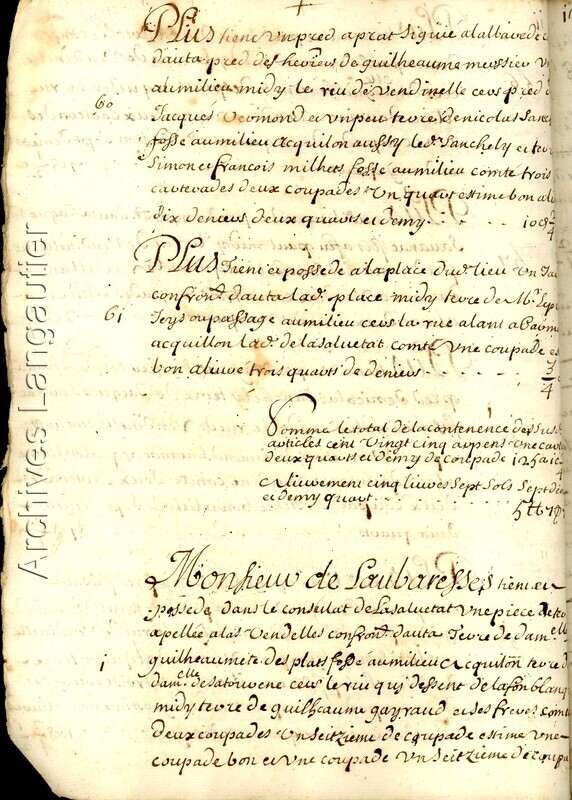 Plus tient un pred a prat siguie a lalbavede
dauta pred des heoires de guilheaume messieu
aumilieu midy le riu de vendinelle cers pred
60 Jacques vermond et un peu terre de nicolas Sanc
fosse aumilieu acquilon aussy led. Sanchely et terre
Simon et francois milhets fosse aumilieu comte trois
carterades deux coupades un quart estime bon aliu
dix deniers deux quarts et demy
Plus tient et possede a la place dud. lieu un
confront. dauta lad. place midy terre de Mr.
61 passage aumilieu cers la rue alant a
acquillon lad. de lasaluetat comte une coupade
bon aliure trois quarts de deniers 3/4
Somme le total de la contenence des sus
articles cent vingt cinq arpens une
deux quarts et demy de coupade 125 a
Aliurement cinq liures sept sols sept
et demy quart
Monsieur de Laubaresses tient et
possede dans le consulat de Lasaluetat une piece de
apellee alas vendelles confront. dauta terre de dam.elle
1 guilheaumete des plats fosse aumilieu acquilon terre
dam.elle cers le riu qui dessent de lafon blanq
midy terre de guilheaume gayraud et ses freres
deux coupades un seitzieme de coupade estime une
coupade bon et une coupade un seitzieme de
Archives Langautier